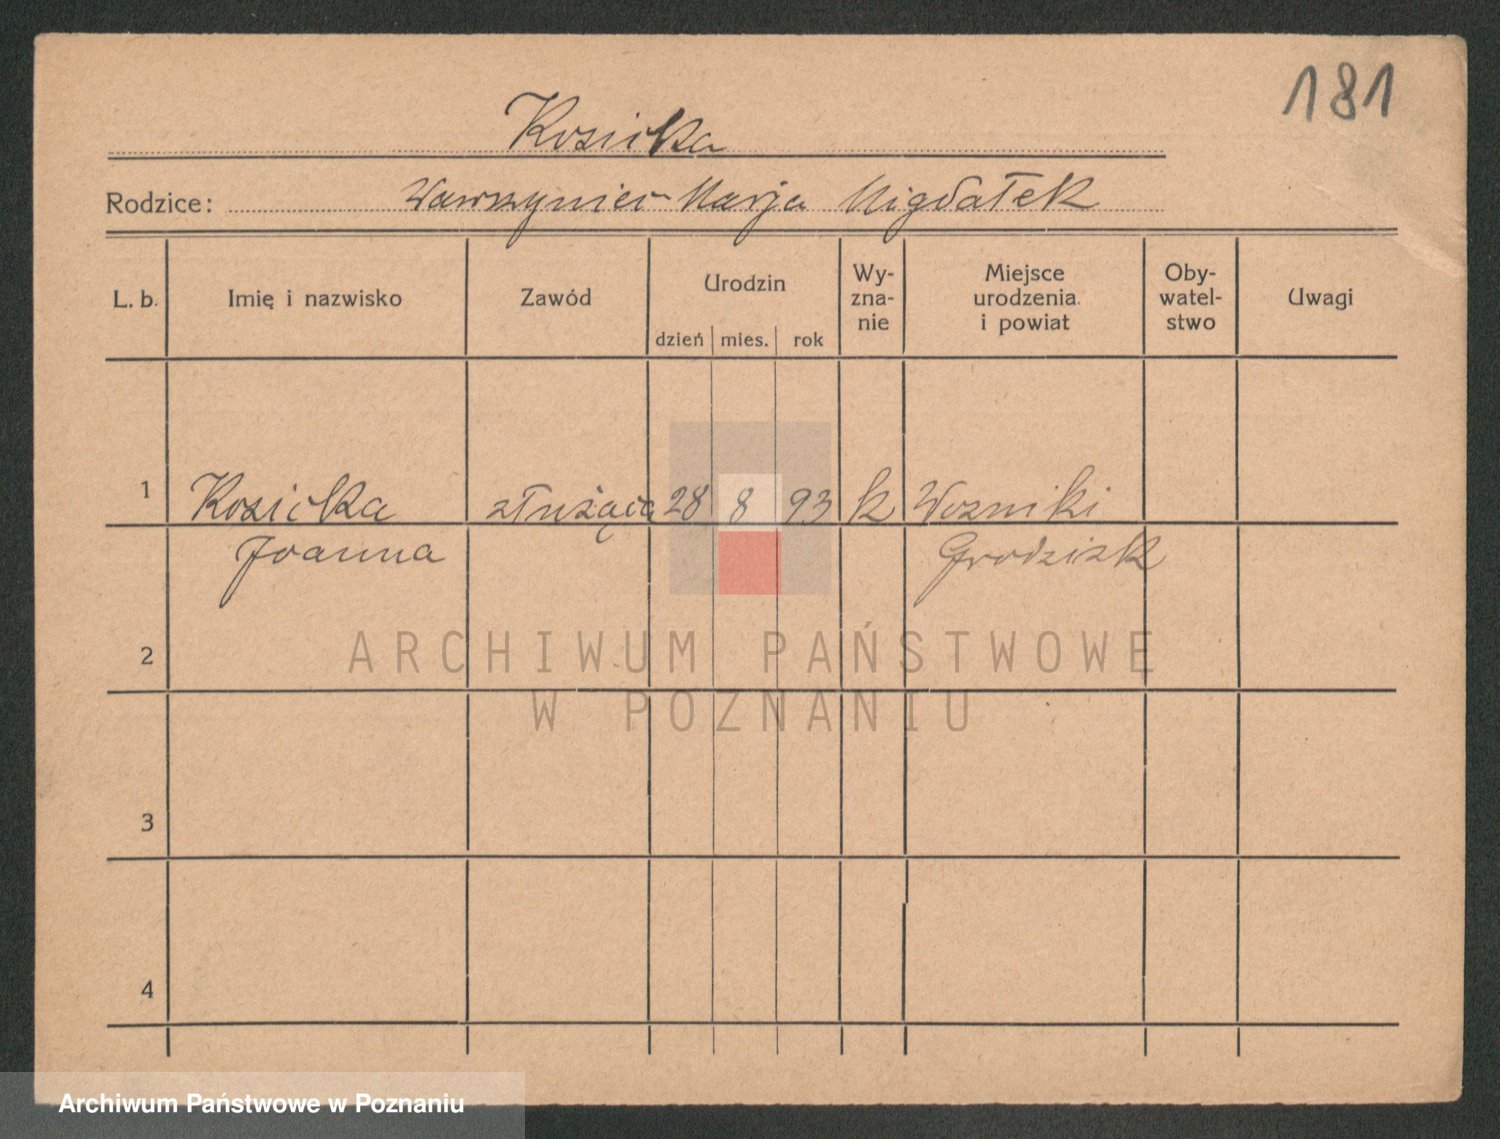 181
Kosicka
Rodzice: Wawrzyniec - Marja Migdałek
L. b. Imię i nazwisko Zawód Urodzin dzień mies. rok Wy-zna-nie Miejsce urodzenia i powiat Oby-watel-stwo Uwagi
1 Kosicka służąca 28 8 93 k Wozniki
Joanna Grodzisk
2
ARCHIWUM PAŃSTWOWE
W POZNANIU
3
4
Archiwum Państwowe w Poznaniu